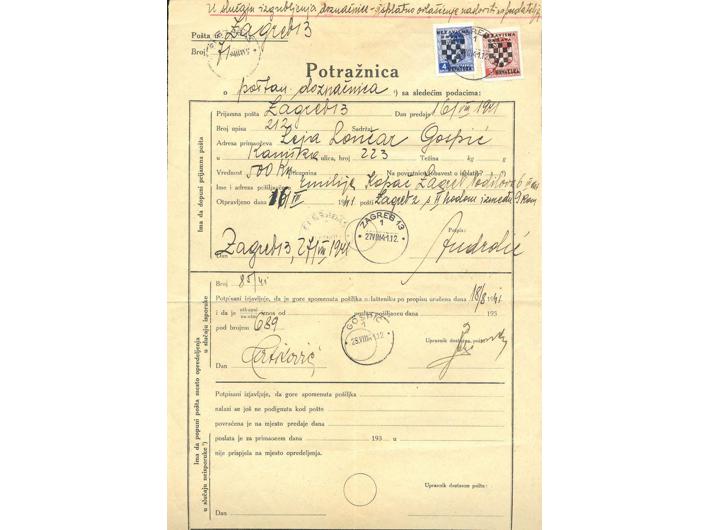 U slučaju izgubljenja doznačnice - besplatno ovlašćenje nadoviti
Pošta u Zagreb 13
Broj 71
NEZAVISNA DRŽAVA HRVATSKA
NEZAVISNA DRŽAVA HRVATSKA
Potražnica
o poštan. doznačnica ¹) sa sledećim podacima:
Ima da dopuni prijamna pošta
Prijamna pošta Zagreb 13 Dan predaje 16/VIII 1941
Broj upisa 212 Sadržaj
Adresa primaočeva Leja Lončar Gospić
u Kaniška ulica, broj 223 Težina kg g
Vrednost 500 Kn Otkupnina Na povratnicu (obavest o isplati)
Ime i adresa pošiljaočeva Emilija Kopač Zagreb
Otpravljeno dana 16/VIII 1941 pošti Zagreb 2 s II hodom između
ZAGREB 13
1
27VIII41.12.
Potpis:
Zagreb 13, 27/VIII 1941
Dan
Androlić
Ima da popuni pošta mesto opredeljenja
u slučaju isporuke
Broj 85/41
Potpisani izjavljuje, da je gore spomenuta pošiljka ovlašteniku po propisu uručena dana 18/8 1941
i da je otkupni iznos od poslat pošiljaocu dana 195
pod brojem 689
GOSPIĆ
1
29VIII41.12
Upravnik dostavne pošte:
Dan
Ima da popuni pošta mesto opredeljenja
u slučaju neisporuke
Potpisani izjavljuje, da gore spomenuta pošiljka
nalazi se još ne podignuta kod pošte
povraćena je na mjesto predaje dana
poslata je za primaocem dana 193 u
nije prispjela na mjesto opredeljenja.
Upravnik dostavne pošte:
Dan